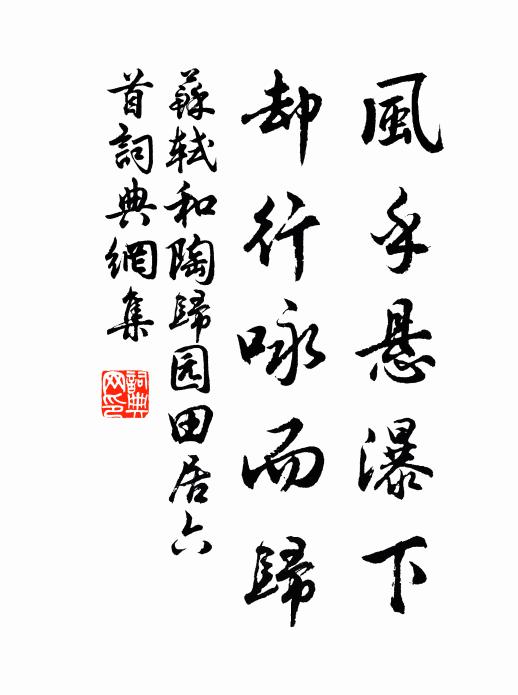 風乎悬瀑下
却行咏而歸
蘇軾和陶歸园田居六
首詞典網集
詞典
网印